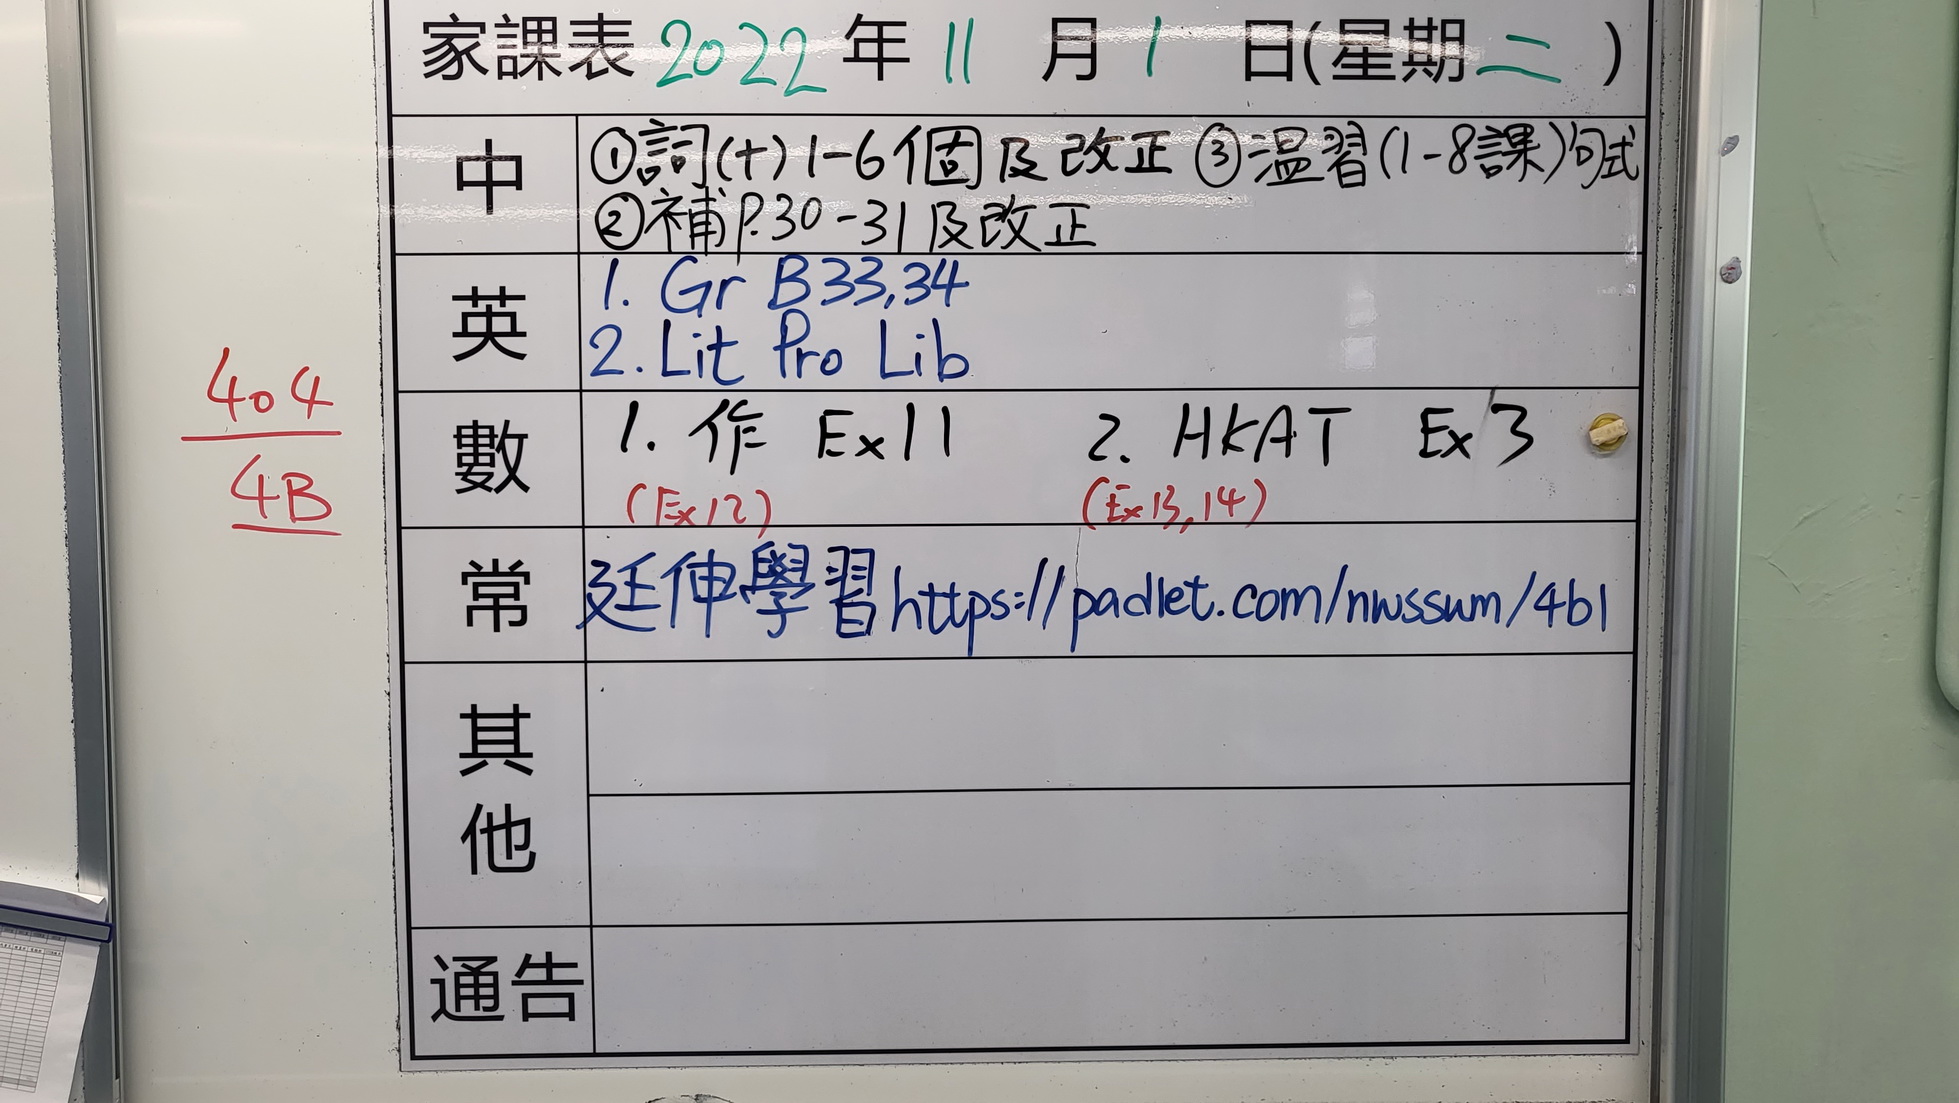 家課表 2022 年 11 月 1 日(星期二)
中
①詞(十)1-6個及改正 ③温習(1-8課)句式
②補P.30-31及改正
英
1. Gr B33,34
2. Lit Pro Lib
404
4B
數
1. 作 Ex11 2. HKAT Ex 3
(Ex12) (Ex13,14)
常
延伸學習 https://padlet.com/nwssum/4b1
其他
通告